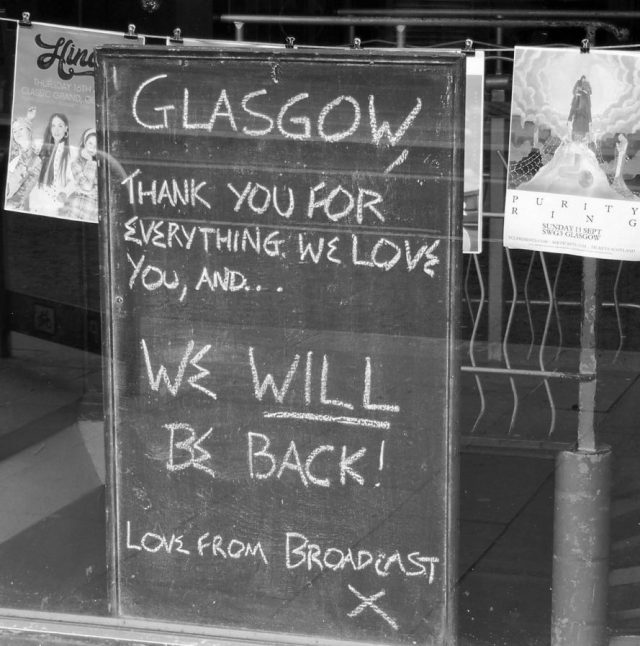 GLASGOW,
THANK YOU FOR
EVERYTHING. WE LOVE
YOU, AND...
WE WILL
BE BACK!
LOVE FROM BROADCAST
X
THURSDAY 16TH
CLASSIC GRAND,
PURITY
RING
SUNDAY 11 SEPT
SWG3 GLASGOW